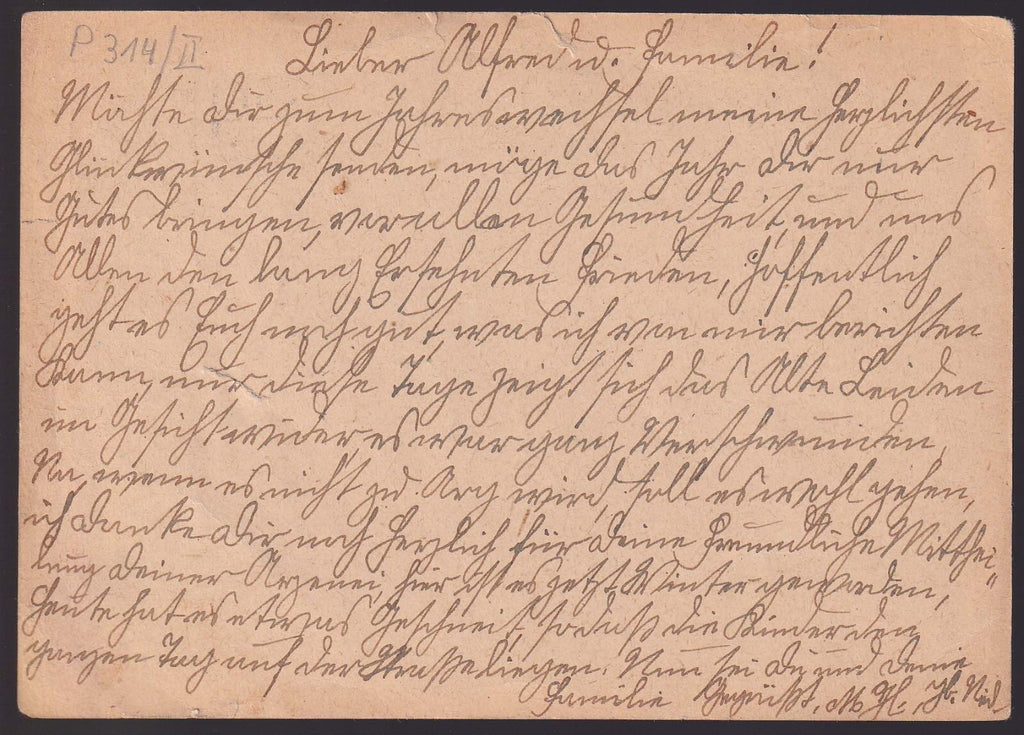 P 314/II
Lieber Alfred u. Familie!
Möchte Dir zum Jahreswechsel meine Herzlichsten
Glückwünsche senden, möge das Jahr Dir nur
Gutes bringen, vor allen Gesundheit, und uns
Allen den lang Ersehnten Frieden, Hoffentlich
geht es Euch noch gut, was ich von mir berichten
Kann, nur diese Tage zeigt sich das Alte Leiden
im Gesicht wider, es war ganz Verschwunden,
Na, wenn es nicht zu Arg wird, soll es wohl gehen,
ich Danke Dir noch Herzlich für Deine Freundliche Mitthei-
lung Deiner Arzenei, hier ist es jetzt Winter geworden,
Heute hat es etwas Geschneit, so daß die Kinder den
ganzen Tag auf der Straße liegen. Nun sei Du und Deine
Familie Gegrüßt.